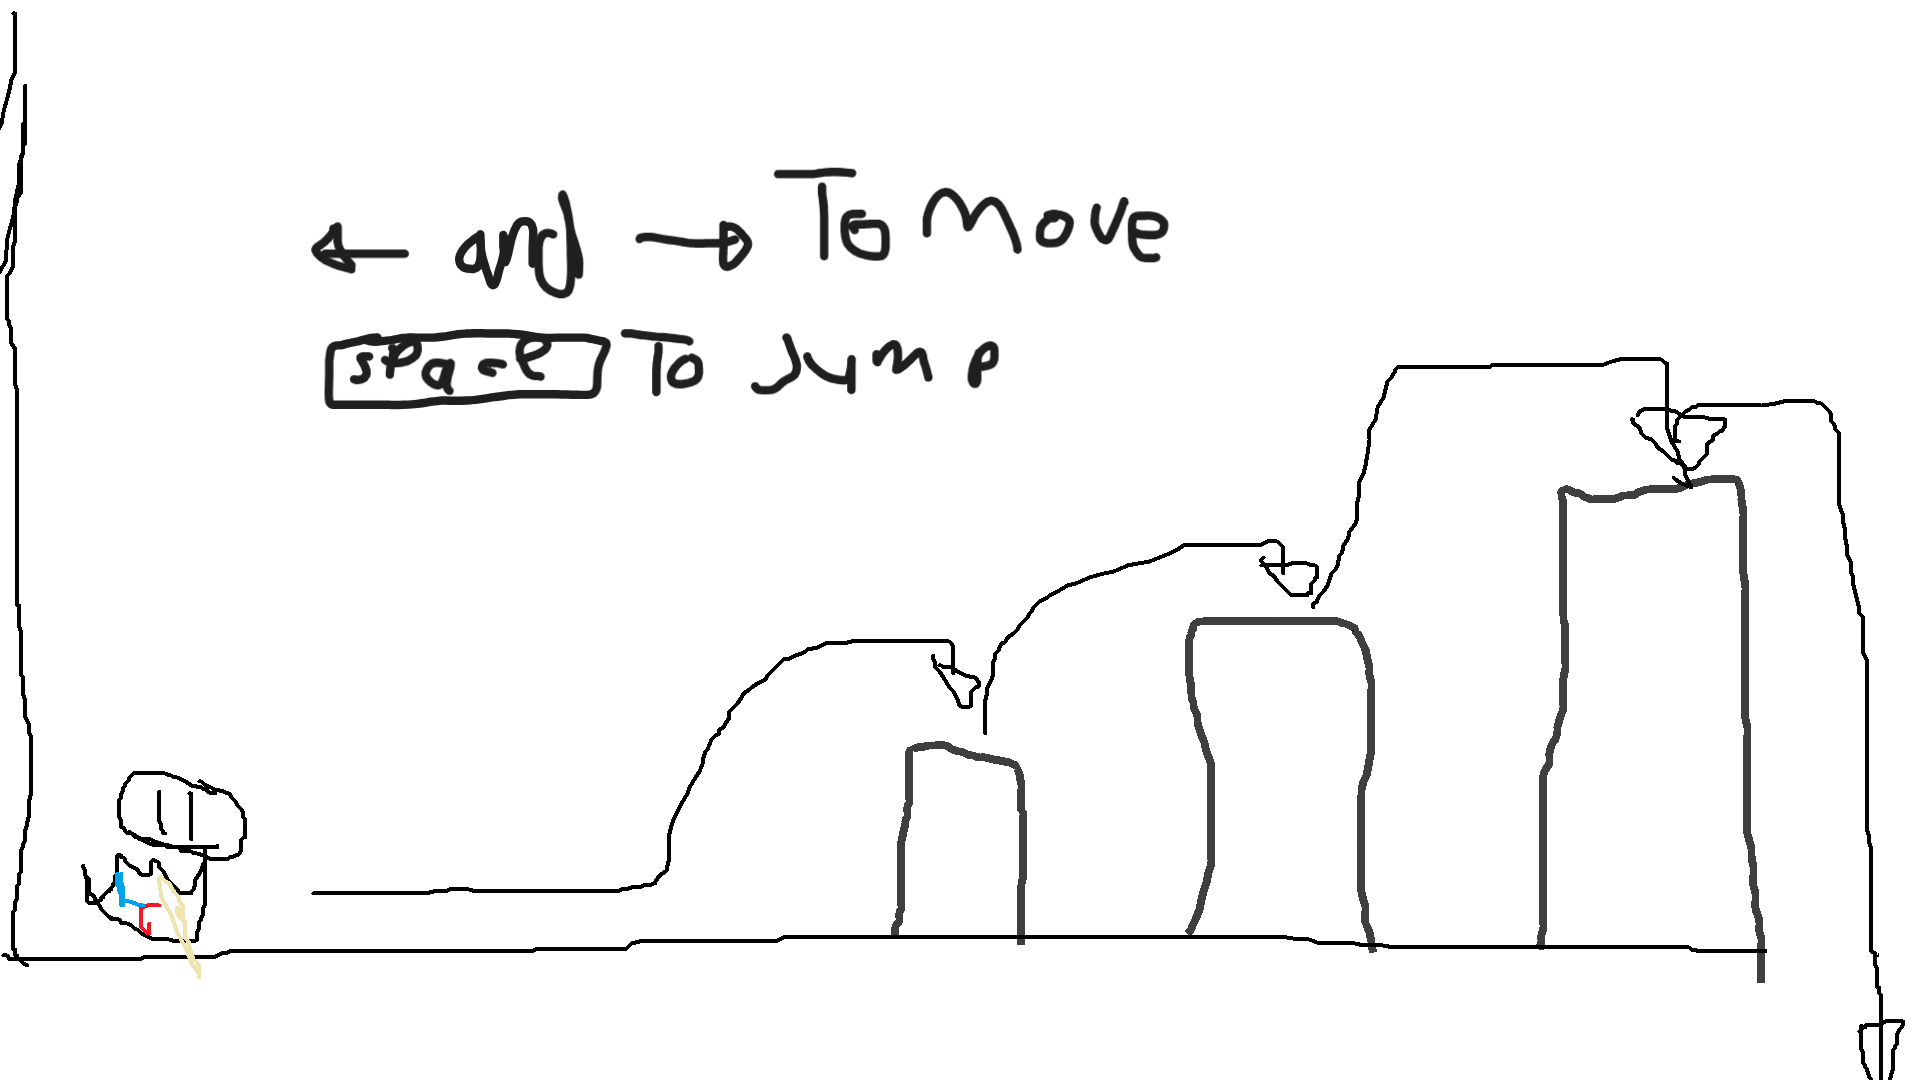 ← and → To Move
space To Jump